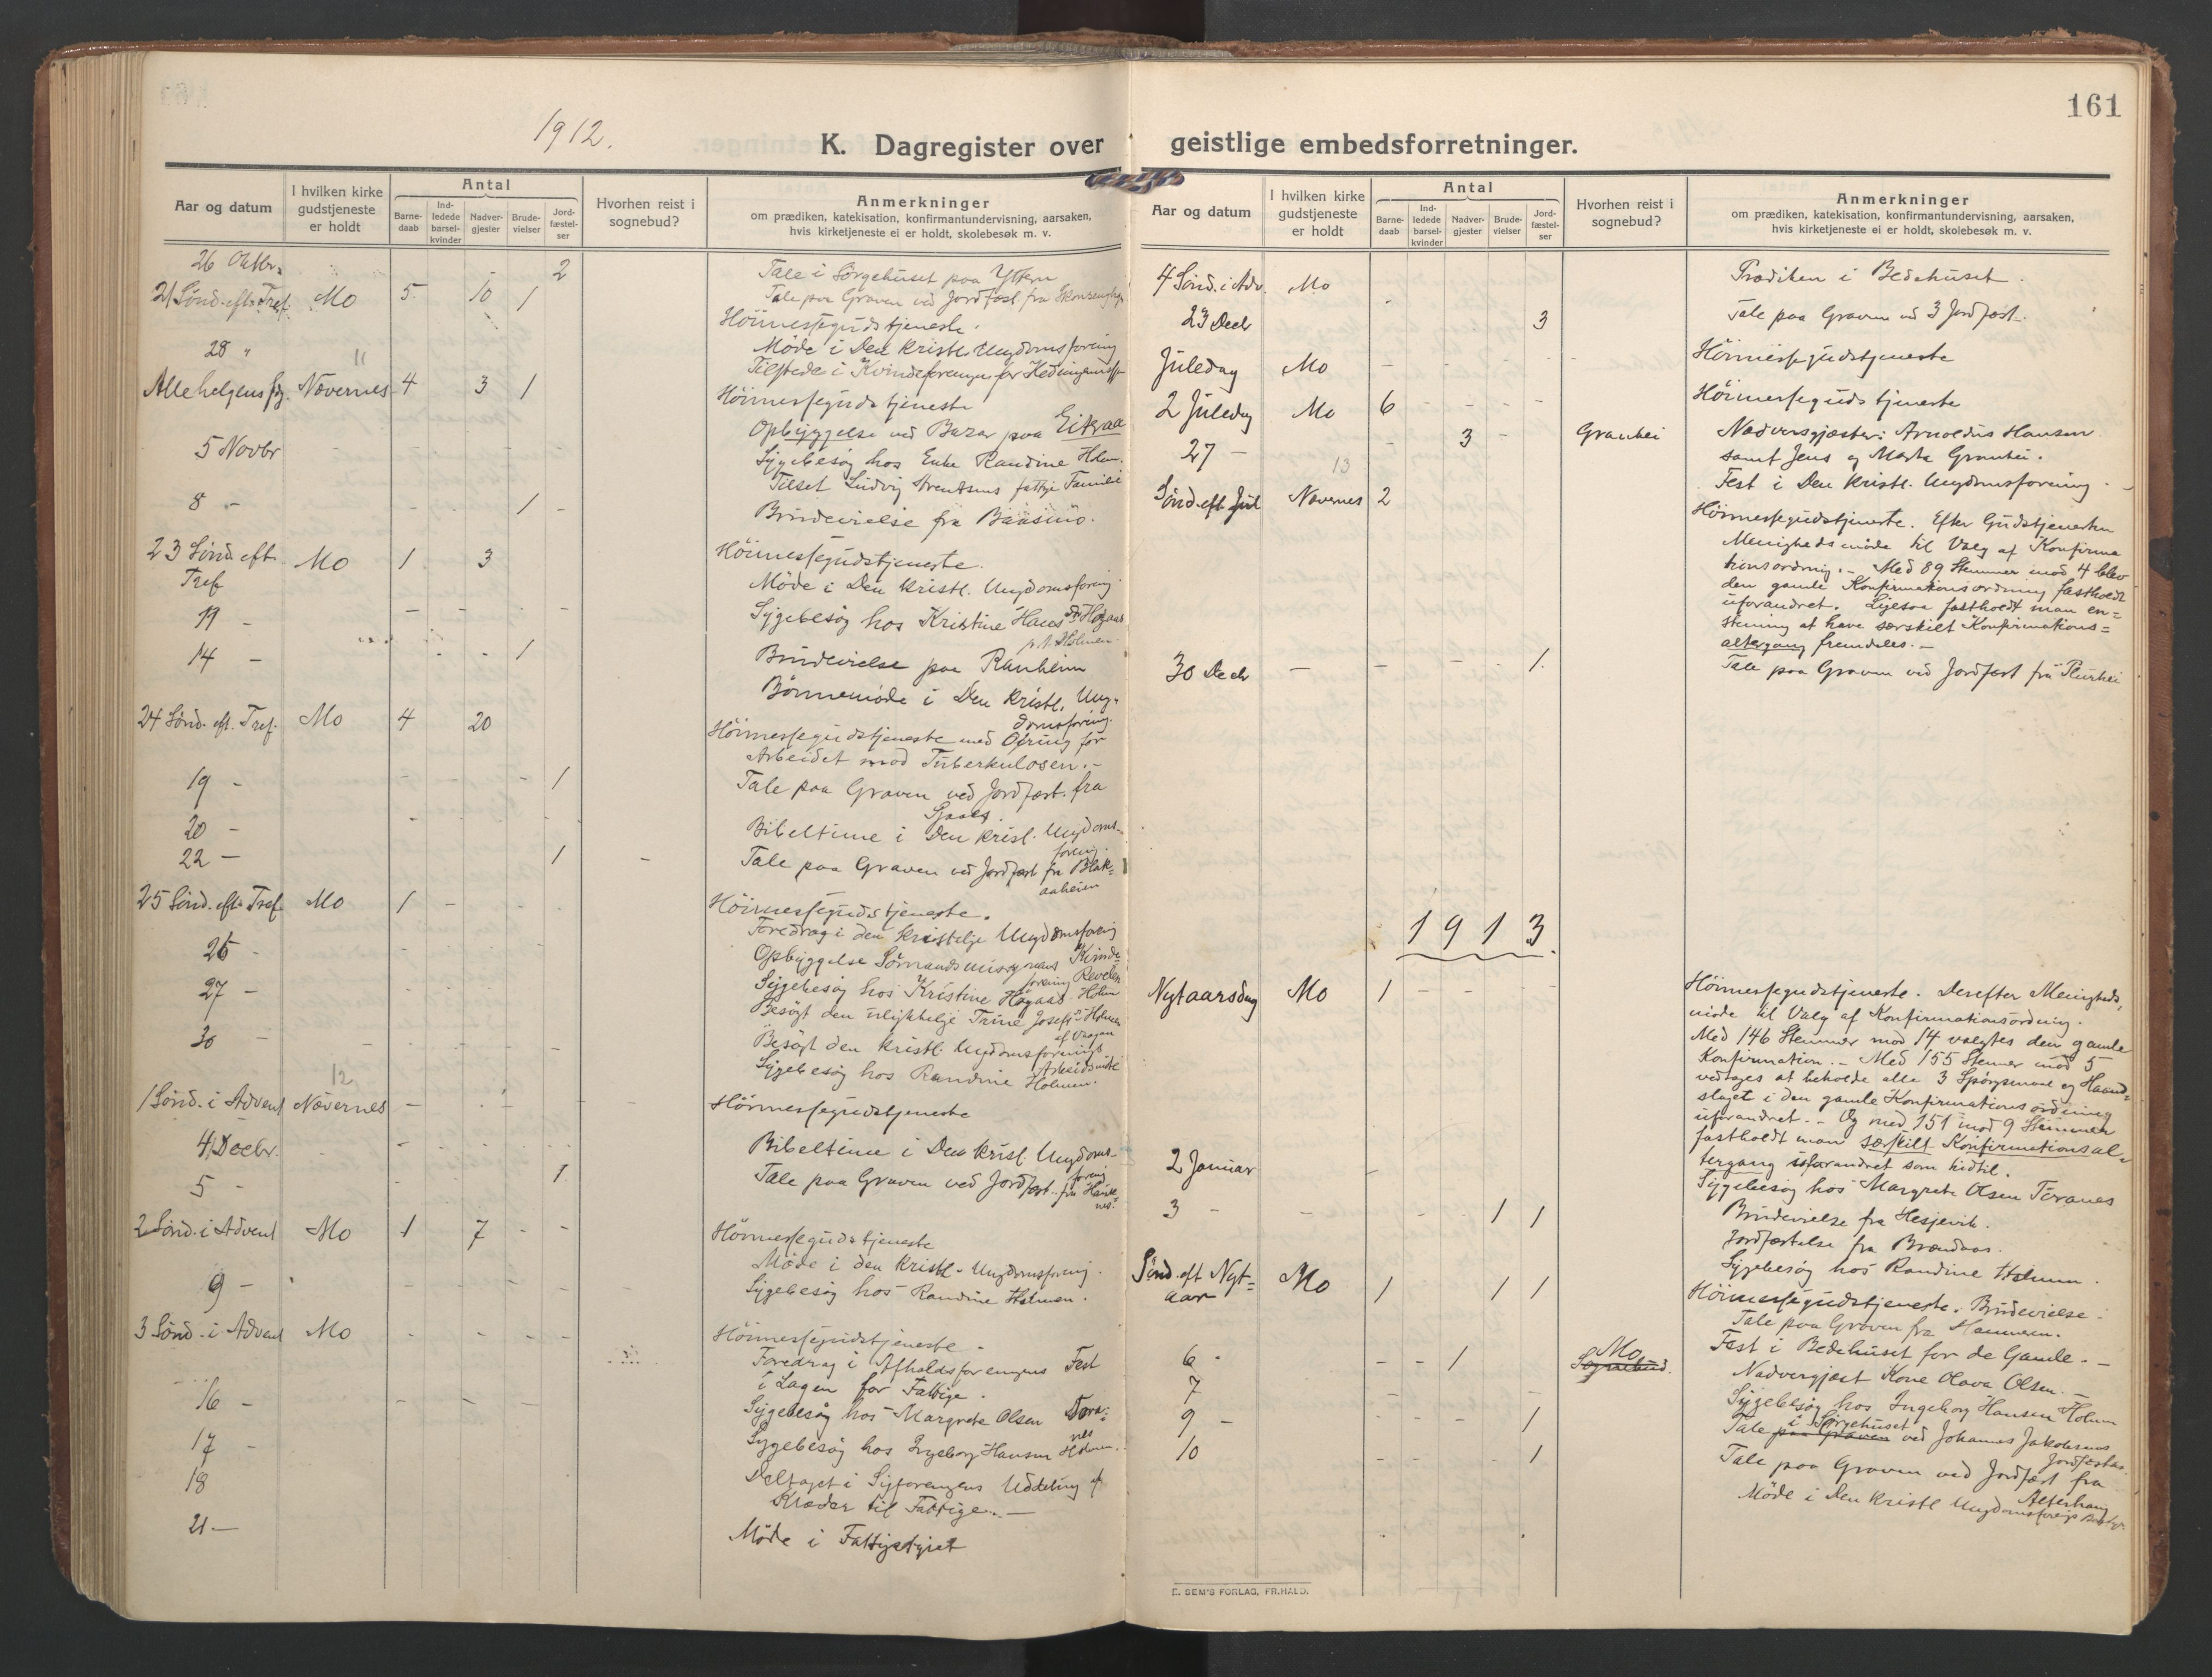 161
1912.
K. Dagregister over geistlige embedsforretninger.
Aar og datum
I hvilken kirke gudstjeneste er holdt
Antal
Barne-daab
Ind-ledede barsel-kvinder
Nadver-gjester
Brude-vielser
Jord-fæstel-ser
Hvorhen reist i sognebud?
Anmerkninger
om prædiken, katekisation, konfirmantundervisning, aarsaken,
hvis kirketjeneste ei er holdt, skolebesøk m. v.
26 Oktbr. 2 Tale i Sørgehuset paa Yttern
21 Sønd. eft. Tref. Mo 5 10 1 Tale paa Graven ved Jordfæst. fra
Höimessegudstjeneste.
28 " 11 Møde i Den kristl. Ungdomsforening
Tilstede i Kvindeforeningen for Hedningemiss.
Allehelgensdg. Nævernes 4 3 1 Höimessegudstjeneste
5 Novbr Opbyggelse ved Bazar paa Eitraa
Sygebesøg hos Enke Randine Holm.
Tilset Ludvig fattige Familie
8 - 1 - Brudevielse fra Baasmo.
23 Sønd. eft. Tref Mo 1 3 Höimessegudstjeneste.
Møde i Den kristl. Ungdomsforening.
11 - Sygebesøg hos Kristine Hans Dr. Høgaas
p. t. Holmen.
14 - 1 Brudevielse paa Ranheim
Børnemøde i Den kristl. Ung-
domsforening.
24 Sønd. eft. Tref. Mo 4 20 Höimessegudstjeneste med Ofring for
Arbeidet mod Tuberkulosen. -
19 - 1 Tale paa Graven ved Jordfæst. fra
20 - Bibeltime i Den kristl. Ungdoms-
forening.
22 - 1 - Tale paa Graven ved Jordfæst fra Blak-
aaheim
25 Sønd. eft. Tref. Mo 1 - Höimessegudstjeneste.
Foredrag i den kristelige Ungdomsforening
26 - Opbyggelse Sømandsmissionens Kvinde-
forening
27 - Sygebesøg hos Kristine Høgaas Holm
Besøgt den ulykkelige Trine Josefs D. Holmen
30 - Besøgt den kristl. Ungdomsforenings
Arbeidsmøde
Sygebesøg hos Randine Holmen.
12
1 Sønd. i Advent Nævernes - Höimessegudstjeneste
4 Decbr. Bibeltime i Den kristl. Ungdoms-
forening
5 - 1 Tale paa Graven ved Jordfæst. fra Hauk-
nes.
2 Sønd. i Advent Mo 1 7 - - Höimessegudstjeneste
Møde i den kristl. Ungdomsforening.
9 - Sygebesøg hos Randine Holmen.
3 Sønd. i Advent Mo Höimessegudstjeneste.
Foredrag i Afholdsforeningens Fest
i Lagen for Fattige.
16 - Sygebesøg hos Margrete Olsen Tora-
nes
17 - Sygebesøg hos Ingeborg Hansen Holmen.
18 Deltaget i Syforeningens Uddeling af
Klæder til Fattige. -
21 - Møde i Fattigstyret
Aar og datum
I hvilken kirke gudstjeneste er holdt
Antal
Barne-daab
Ind-ledede barsel-kvinder
Nadver-gjester
Brude-vielser
Jord-fæstel-ser
Hvorhen reist i sognebud?
Anmerkninger
om prædiken, katekisation, konfirmantundervisning, aarsaken,
hvis kirketjeneste ei er holdt, skolebesøk m. v.
4 Sønd. i Adv. Mo Prædiken i Bedehuset.
23 Decbr 3 Tale paa Graven ved 3 Jordfæst.
Juledag Mo - - - - Höimessegudstjeneste
2 Juledag Mo 6 - - - - Höimessegudstjeneste
27 - 3 - Granhei Nadvergjester: Arnoldus Hansen
samt Jens og Marta Granhei.
13 Fest i Den kristl. Ungdomsforening.
Sønd. eft. Jul Nævernes 2 Höimessegudstjeneste. Efter Gudstjenesten
Menighedsmøde til Valg af Konfirma
tionsordning. - Med 89 Stemmer mod 4 blev
den gamle Konfirmationsordning fastholdt
uforandret. Ligesaa fastholdt man en-
stemmig at have særskilt Konfirmations-
altergang fremdeles. -
30 Decbr - - - 1. Tale paa Graven ved Jordfæst fra Plurhei
1913.
Nytaarsdag Mo 1 - - Höimessegudstjeneste. Derefter Menigheds-
møde til Valg af Konfirmationsordning.
Med 146 Stemmer mod 14 valgtes den gamle
Konfirmation. - Med 155 Stemmer mod 5
vedtages at beholde alle 3 Spørgsmaal og Haand-
slaget i den gamle Konfirmationsordning
uforandret. - Og med 151 mod 9 Stemmer
fastholdt man særskilt Konfirmationsal-
tergang uforandret som hidtil.
2 Januar - Sygebesøg hos Margrete Olsen Toranes
3 - - 1 1 Brudevielse fra Hesjevik.
Jordfæstelse fra Brændaas.
Sygebesøg hos Randine Holmen.
Sønd. eft Nyt-aar Mo 1 1 1 Höimessegudstjeneste. Brudevielse.
Tale paa Graven fra Hammeren.
6 - - - 1 Mo Sognebud. Fest i Bedehuset for de Gamle. -
Nadvergjæst Kone Olava Olsen. -
7 Sygebesøg hos Ingeborg Hansen Holmen
9 - 1 Tale paa Graven i Sørgehuset ved Johannes Jakobsens
Jordfæstelse.
10 1 Tale paa Graven ved Jordfæst fra
Alterhaug
Møde i Den kristl Ungdomsforenings
E. SEM'S FORLAG, FR.HALD.